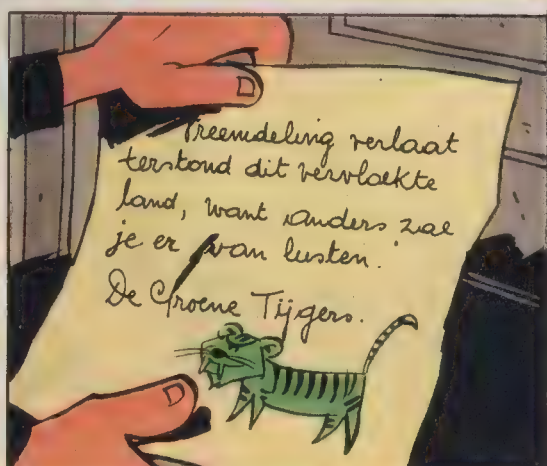 Vreemdeling verlaat
terstond dit vervloekte
land, want anders zal
je er van lusten.
De Groene Tijgers.